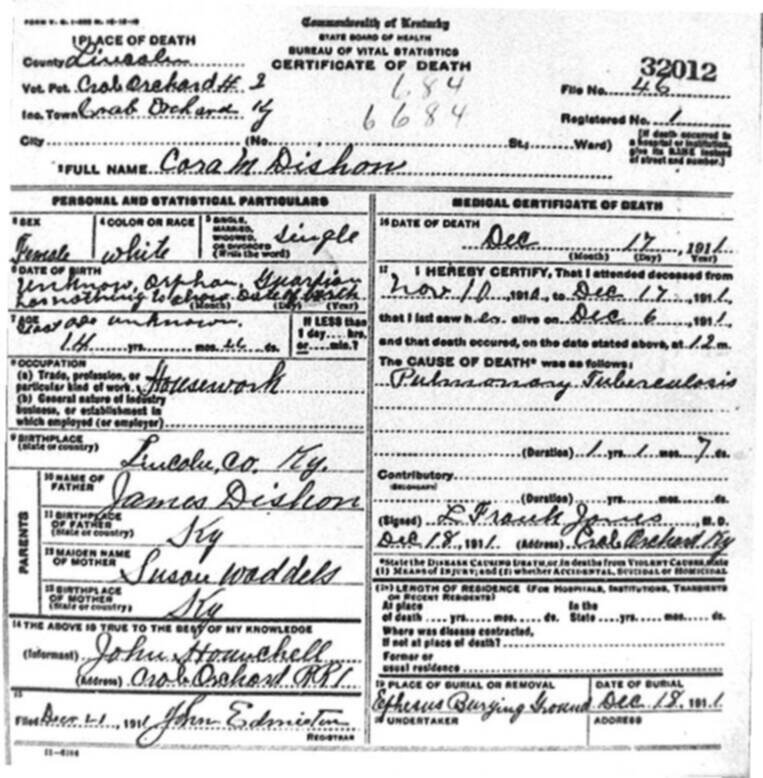 Commonwealth of Kentucky
STATE BOARD OF HEALTH
BUREAU OF VITAL STATISTICS
CERTIFICATE OF DEATH
1 PLACE OF DEATH
County Lincoln
Vot. Pct. Crab Orchard # 2
Inc. Town Crab Orchard Ky
City (No. St.; Ward)
684
6684
32012
File No. 46
Registered No. 1
[If death occurred in a hospital or institution, give its NAME instead of street and number.]
2 FULL NAME Cora M Dishon
PERSONAL AND STATISTICAL PARTICULARS
3 SEX
Female
4 COLOR OR RACE
White
5 SINGLE, MARRIED, WIDOWED, OR DIVORCED (Write the word)
Single
6 DATE OF BIRTH
unknow, orphan, Guardian
has nothing to show date of birth
(Month) (Day) (Year)
7 AGE
unknown.
14 yrs. mos. ds.
If LESS than 1 day .... hrs. or .... min.?
8 OCCUPATION
(a) Trade, profession, or particular kind of work Housework
(b) General nature of industry business, or establishment in which employed (or employer)
9 BIRTHPLACE
(State or country)
Lincoln, Co. Ky.
PARENTS
10 NAME OF FATHER
James Dishon
11 BIRTHPLACE OF FATHER
(State or country)
Ky
12 MAIDEN NAME OF MOTHER
Susan Waddels
13 BIRTHPLACE OF MOTHER
(State or country)
Ky
14 THE ABOVE IS TRUE TO THE BEST OF MY KNOWLEDGE
(Informant) John Hounchell
(Address) Crab Orchard RR1
15
Filed Dec 21, 1911 John Edmiston
REGISTRAR
MEDICAL CERTIFICATE OF DEATH
16 DATE OF DEATH
Dec 17, 1911
(Month) (Day) (Year)
17 I HEREBY CERTIFY, That I attended deceased from
Nov 10 1910, to Dec 17, 1911,
that I last saw her alive on Dec 6, 1911
and that death occured, on the date stated above, at 12 m.
The CAUSE OF DEATH* was as follows:
Pulmonary Tuberculosis
(Duration) 1 yrs. 1 mos. 7 ds.
Contributory
(SECONDARY)
(Duration) yrs. mos. ds.
(Signed) L Frank Jones, M. D.
Dec 18, 1911 (Address) Crab Orchard Ky
*State the DISEASE CAUSING DEATH, or in deaths from VIOLENT CAUSES, state (1) MEANS OF INJURY; and (2) whether ACCIDENTAL, SUICIDAL or HOMICIDAL
LENGTH OF RESIDENCE (FOR HOSPITALS, INSTITUTIONS, TRANSIENTS OR RECENT RESIDENTS)
At place of death .... yrs. .... mos. .... ds. In the State .... yrs. .... mos. .... ds.
Where was disease contracted, If not at place of death?
Former or usual residence
19 PLACE OF BURIAL OR REMOVAL
Ephesus Burying Ground
DATE OF BURIAL
Dec 18, 1911
UNDERTAKER
ADDRESS